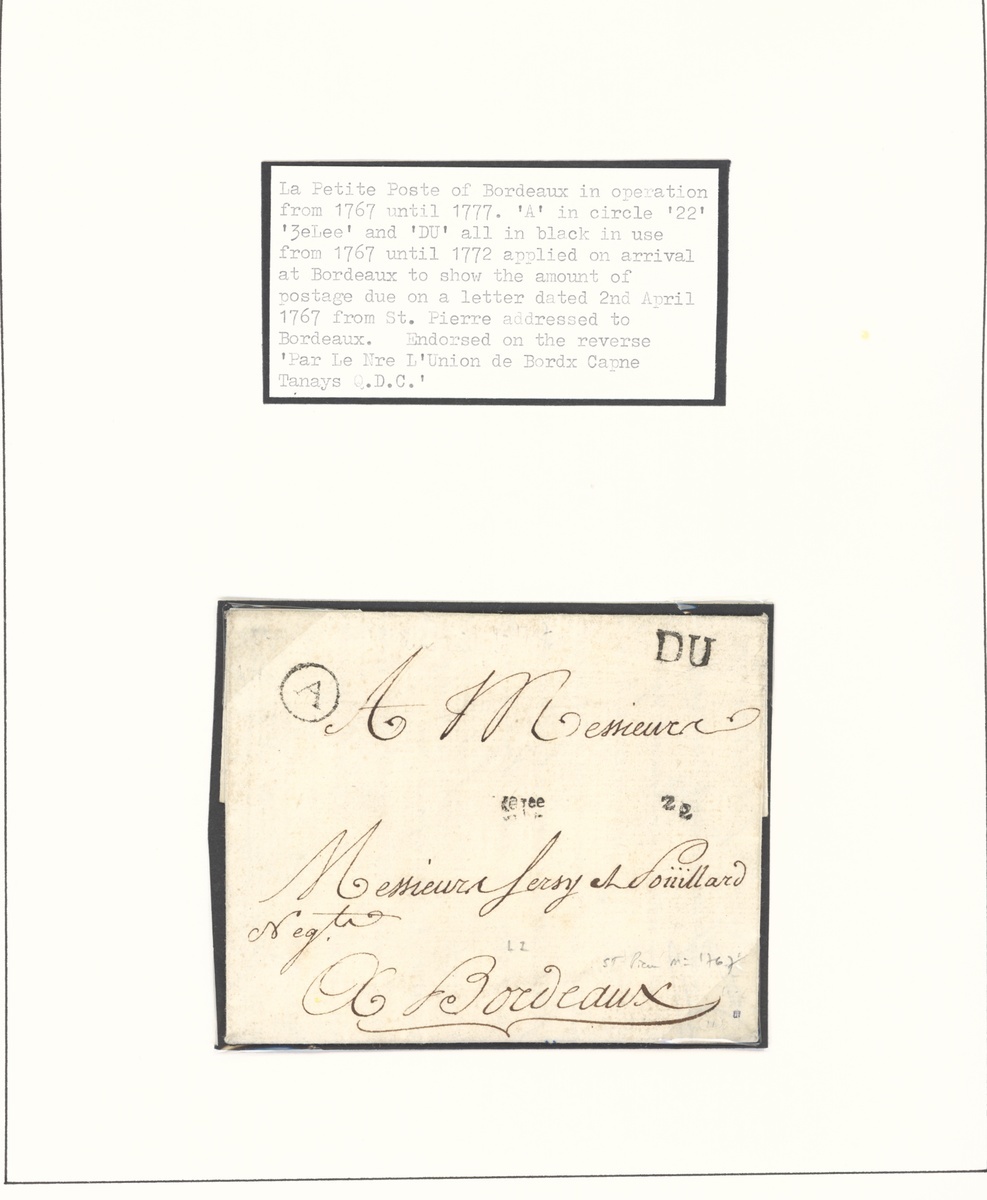 La Petite Poste of Bordeaux in operation
from 1767 until 1777. 'A' in circle '22'
'3eLee' and 'DU' all in black in use
from 1767 until 1772 applied on arrival
at Bordeaux to show the amount of
postage due on a letter dated 2nd April
1767 from St. Pierre addressed to
Bordeaux. Endorsed on the reverse
'Par Le Nre L'Union de Bordx Capne
Tanays Q.D.C.'
DU
A
A Messieurs
22
Messieurs et
Negts
A Bordeaux